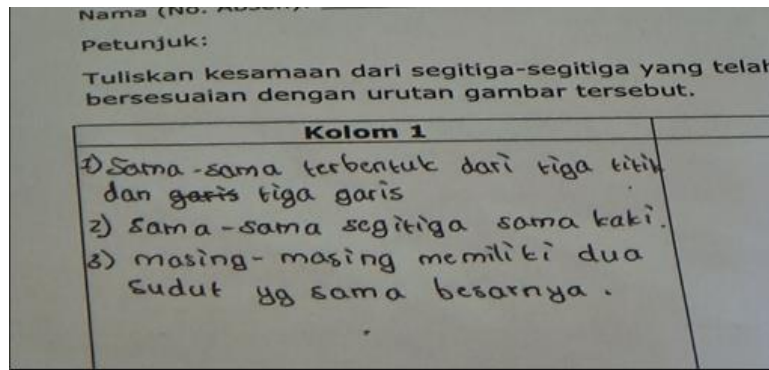 Nama (No. Absen):
Petunjuk:
Tuliskan kesamaan dari segitiga-segitiga yang telah
bersesuaian dengan urutan gambar tersebut.
Kolom 1
1) Sama-sama terbentuk dari tiga titik
dan garis tiga garis
2) sama-sama segitiga sama kaki.
3) masing-masing memiliki dua
sudut yg sama besarnya.